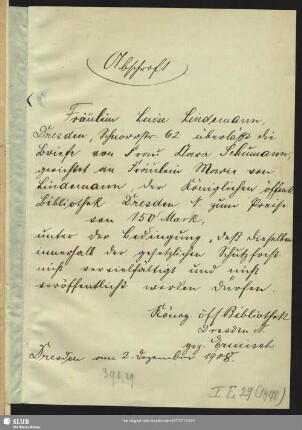 Abschrift
Fräulein Luise Lindemann,
Dresden, Schnorrstr. 62 überläßt die
Briefe von Frau Clara Schumann,
gerichtet an Fräulein Marie von
Lindemann, der Königlichen öffentl.
Bibliothek Dresden N. zum Preise
von 150 Mark,
unter der Bedingung, daß dieselben
innerhalb der gesetzlichen Schutzfrist
nicht vervielfältigt und nicht
veröffentlicht werden dürfen.
Königl. öff. Bibliothek
Dresden N.
gez. Ermisch
Dresden am 2. Dezember 1908.
I E, 29 (1908)
SLUB
Wir führen Wissen.